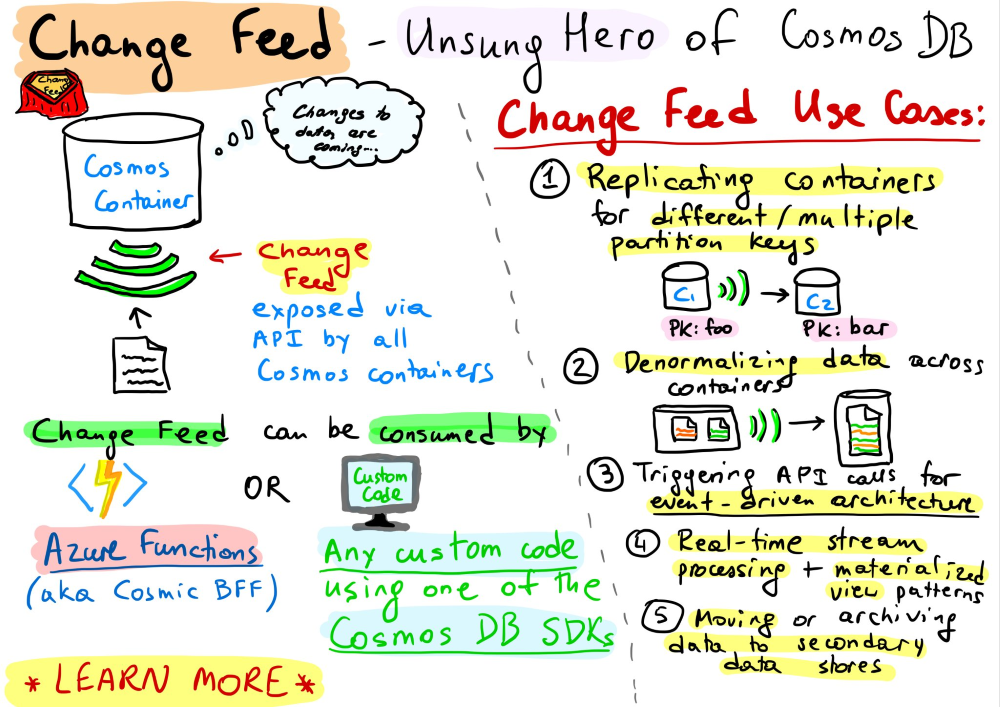 Change Feed - Unsung Hero of Cosmos DB
Change Feed
Changes to
data are
coming...
Cosmos
Container
Change
Feed
exposed via
API by all
Cosmos containers
Change Feed can be consumed by
OR
Custom
Code
Azure Functions
(aka Cosmic BFF)
Any custom code
using one of the
Cosmos DB SDKs
* LEARN MORE *
Change Feed Use Cases:
1 Replicating containers
for different/multiple
partition keys
C1
C2
PK: foo
PK: bar
2 Denormalizing data across
containers
3 Triggering API calls for
event-driven architecture
4 Real-time stream
processing + materialized
view patterns
5 Moving or archiving
data to secondary
data stores